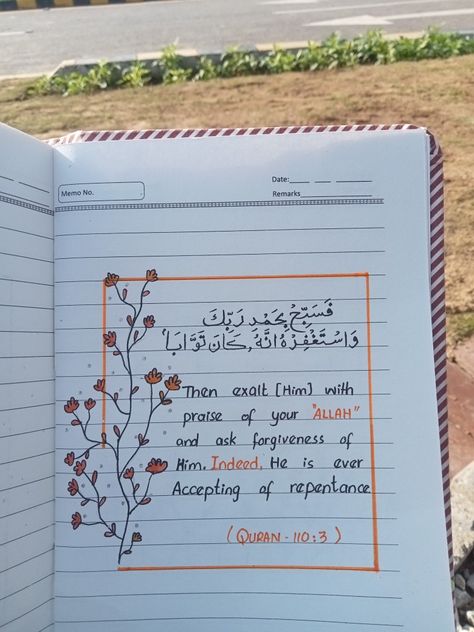 Memo No.
Date:
Remarks
فَسَبِّحْ بِحَمْدِ رَبِّكَ
وَاسْتَغْفِرْهُ اِنَّهُ كَانَ تَوَّابَا
Then exalt [Him] with
praise of your "ALLAH"
and ask forgiveness of
Him. Indeed, He is ever
Accepting of repentance
(QURAN - 110:3)